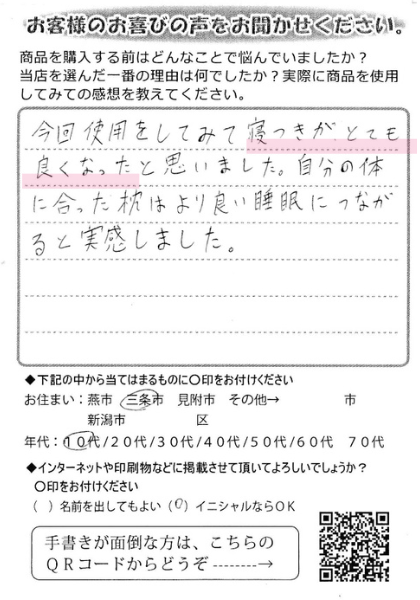 お客様のお喜びの声をお聞かせください。
商品を購入する前はどんなことで悩んでいましたか？
当店を選んだ一番の理由は何でしたか？実際に商品を使用
してみての感想を教えてください。
今回使用をしてみて寝つきがとても
良くなったと思いました。自分の体
に合った枕はより良い睡眠につなが
ると実感しました。
◆下記の中から当てはまるものに〇印をお付けください
お住まい：燕市　三条市　見附市　その他→　　　　市
新潟市　　　　　　区
年代：１０代/２０代/３０代/４０代/５０代/６０代　７０代
◆インターネットや印刷物などに掲載させて頂いてよろしいでしょうか？
〇印をお付けください
（　）名前を出してもよい（〇）イニシャルならＯＫ
手書きが面倒な方は、こちらの
ＱＲコードからどうぞ-------→